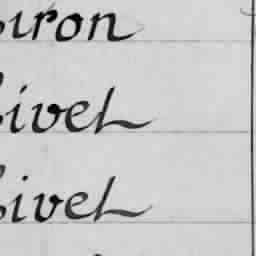 iron
ivel
ivel